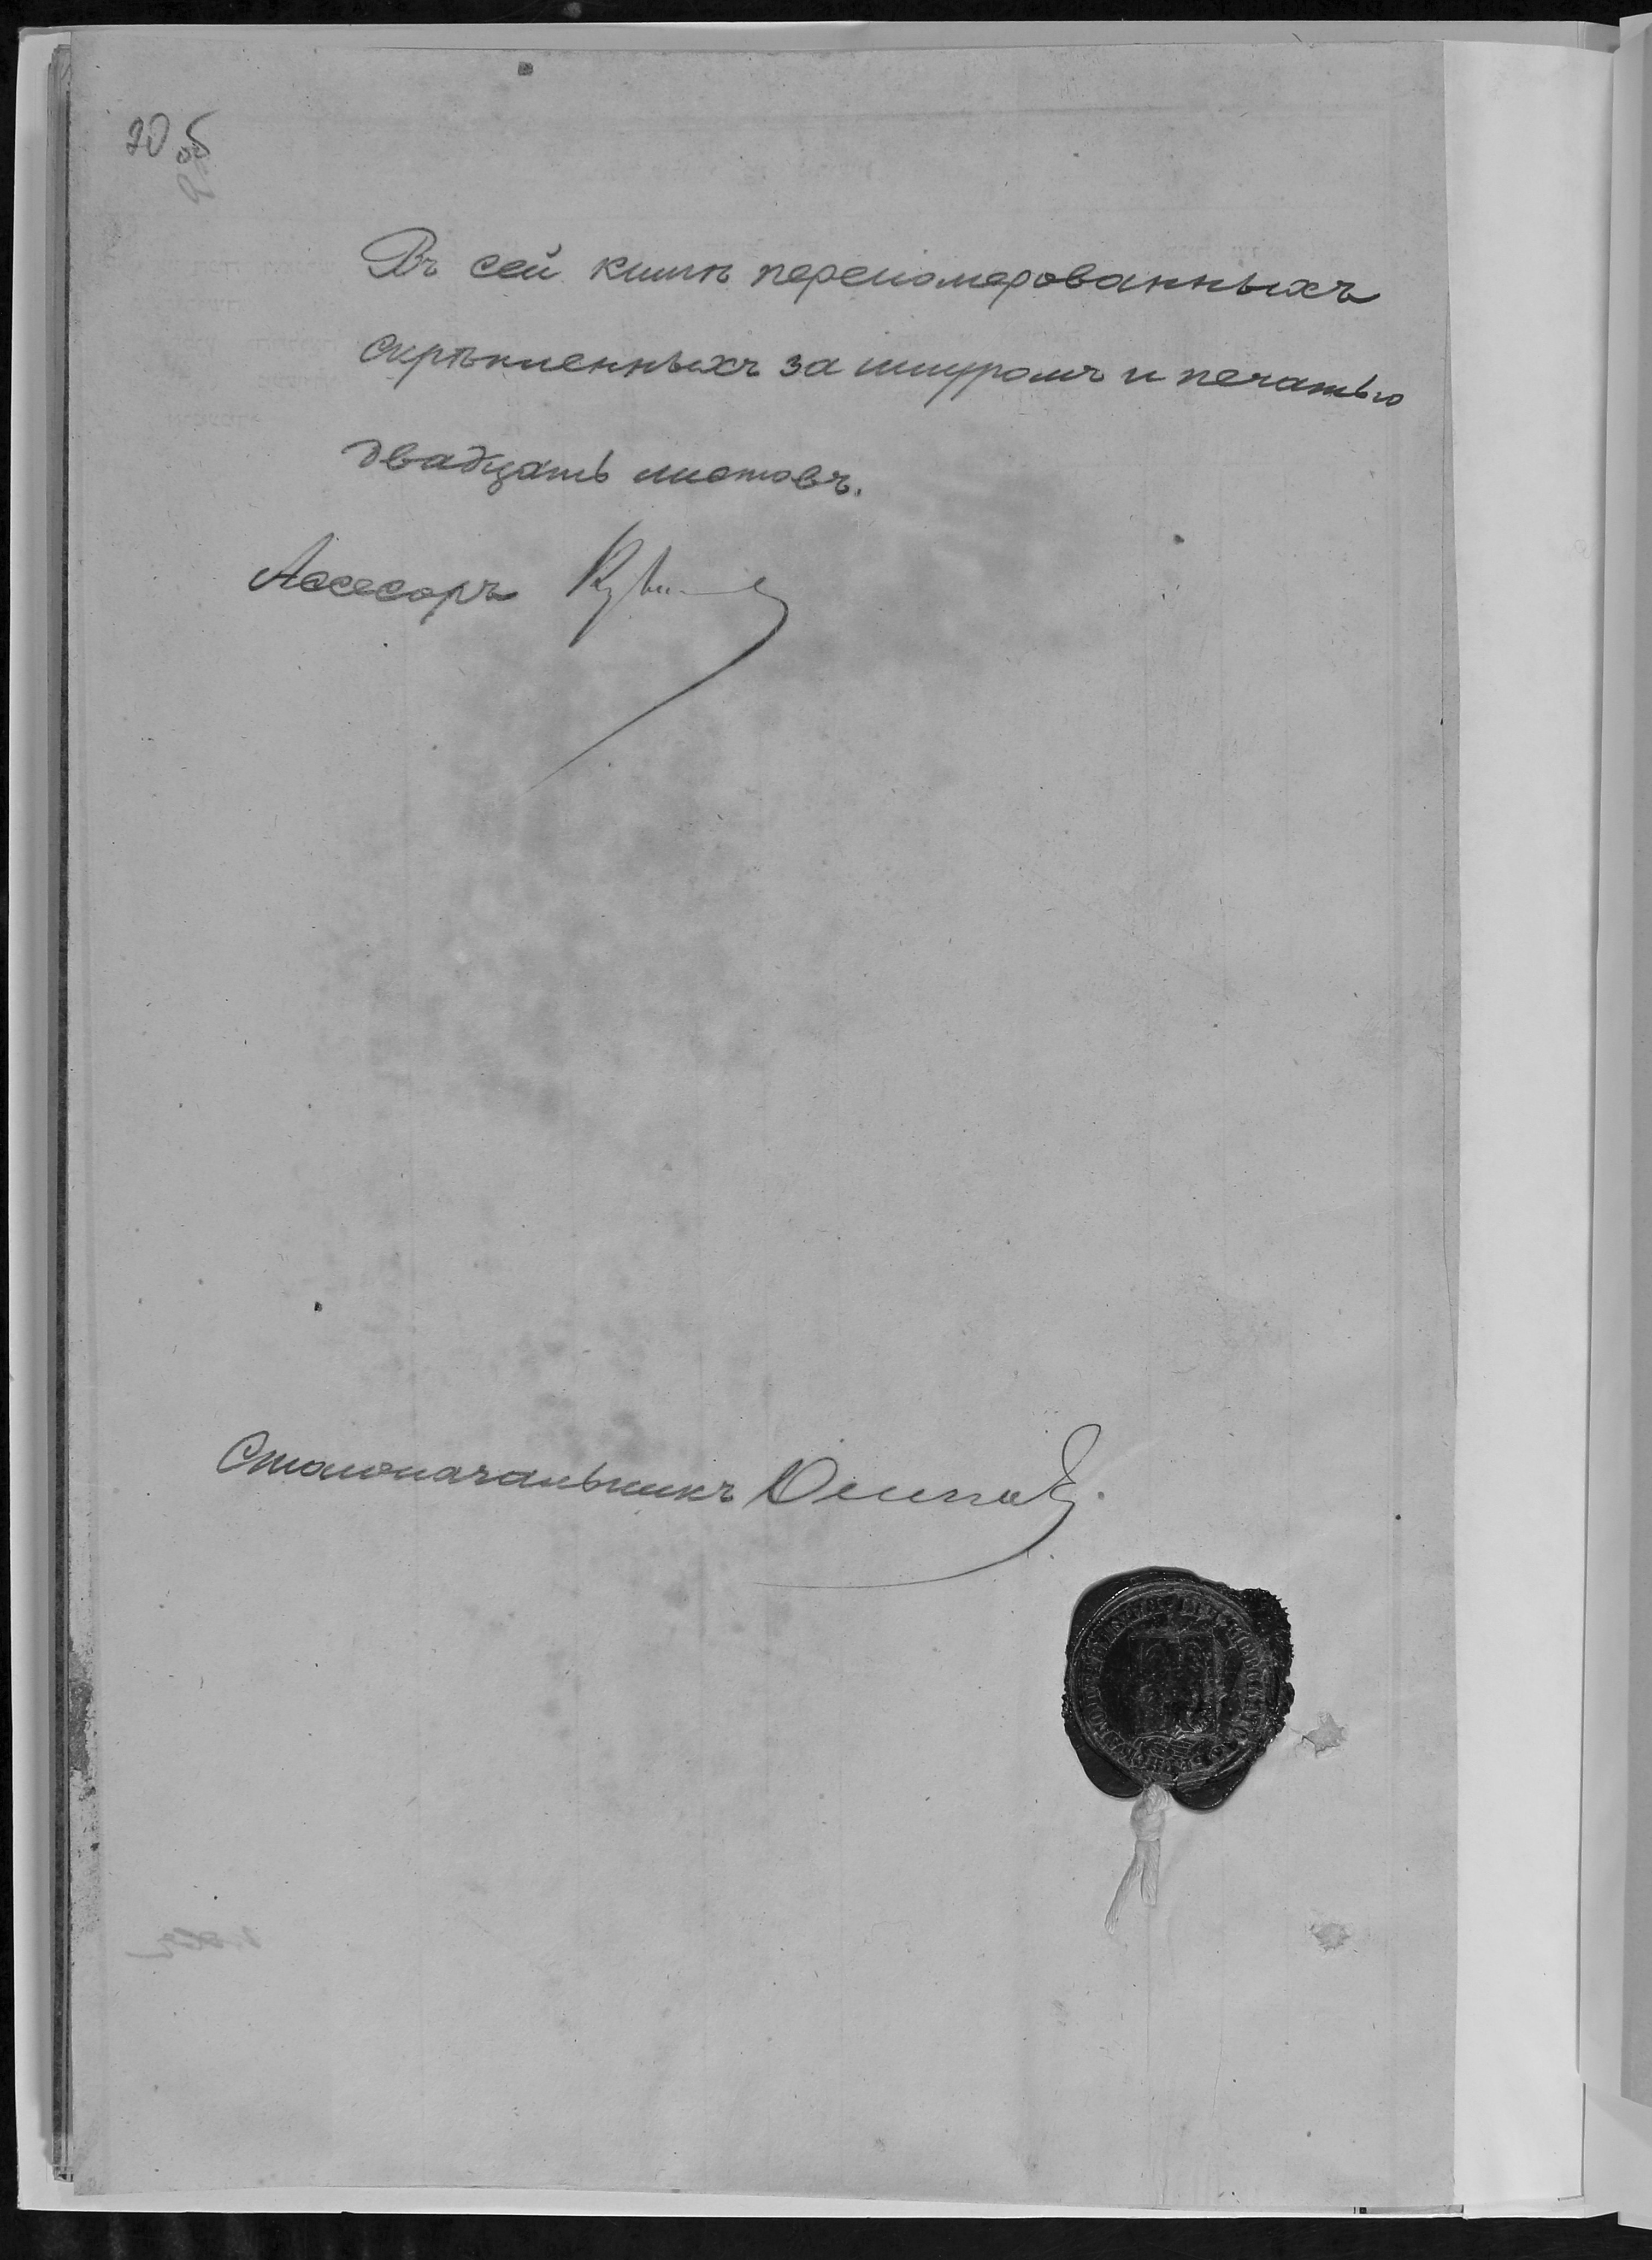 20 об
Въ сей книгѣ перономерованныхъ
скрѣпленныхъ за шнуромъ и печатью
двадцать листовъ.
Ассесоръ
Столоначальникъ